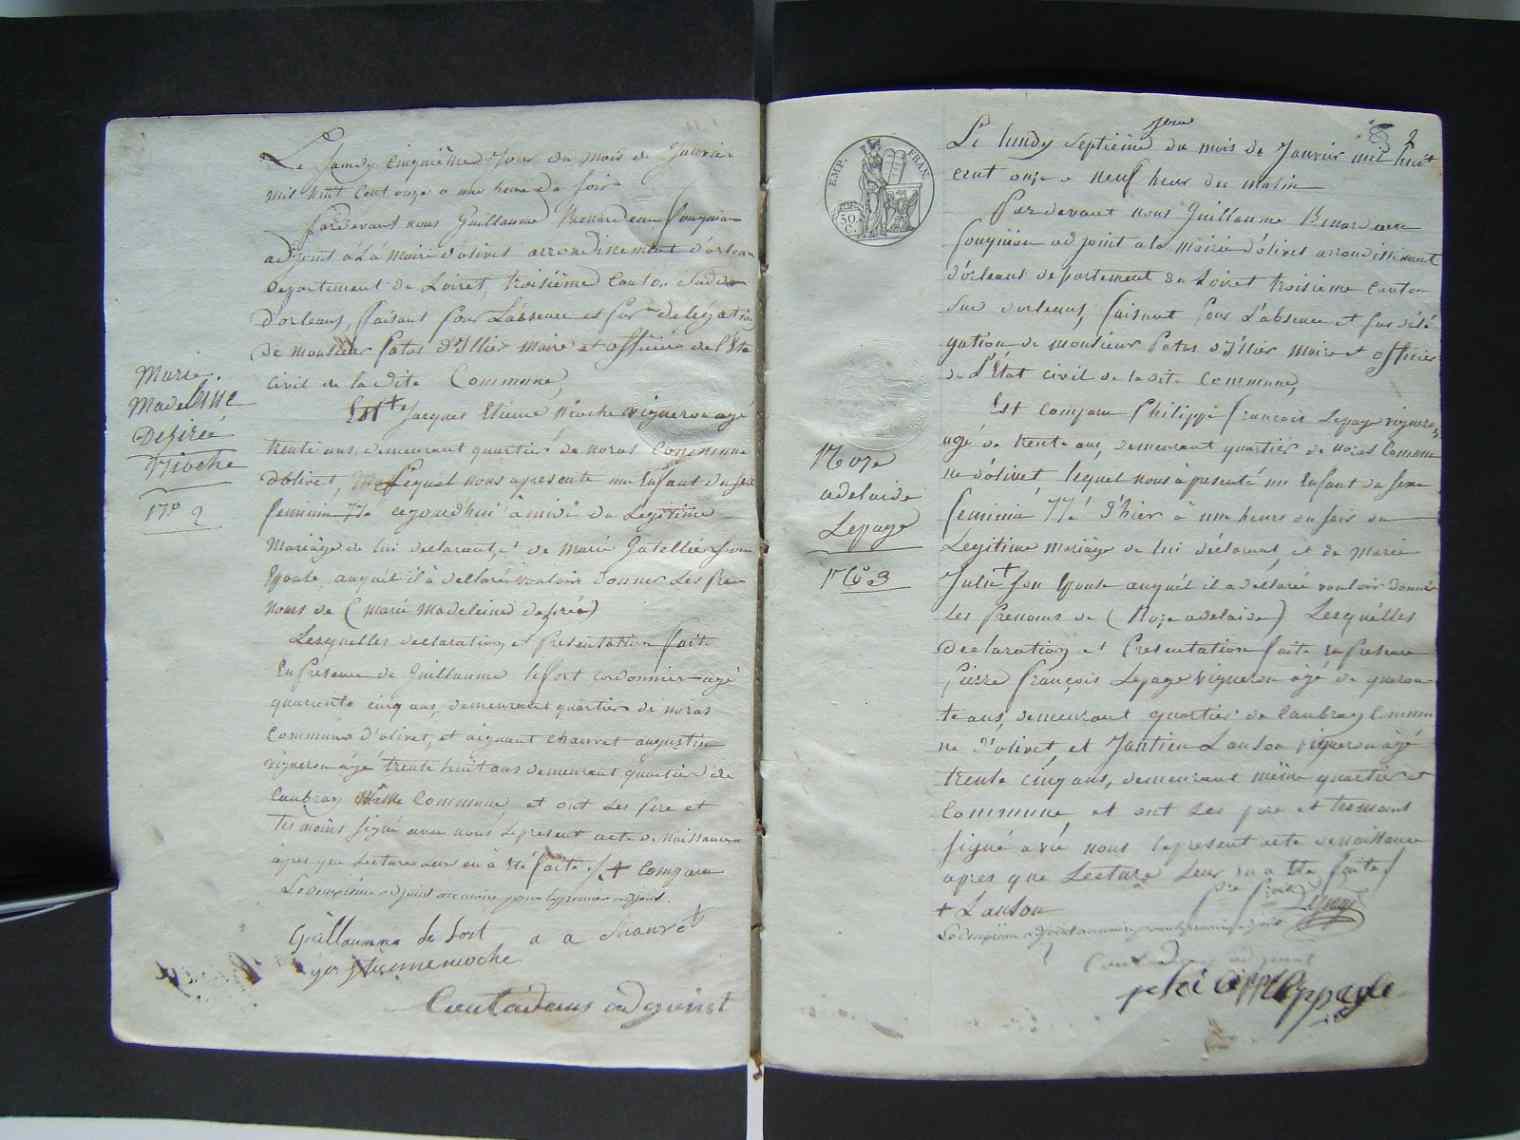 Le Samdy cinquiême Jour du mois de Janvier
mil huit cent onze a une heure du soir
Pardevant nous Guillaume Benard
adjoint à La mairie d'olivet arrondissement d'orleans
Departement du Loiret, troisiême Canton Sud
D'orleans, faisant pour L'absence et par delegation
de monsieur Patas D'Illier maire et officier de l'Etat
civil de la dite Commune,
Est + Jacques Etienne Rioche vigneron agé
trente ans, demeurant quartier de noras Commune
D'olivet, Lequel nous a presenté un Enfant du sexe
feminin Né cejourd'hui à midi du Legitime
Mariage de lui declarant, et de marie Gatellier Son
Epouse, auquel il à declaré vouloir donner Les pré
noms de (marie madeleine desirée)
Lesquelles declaration et presentation faite
En presence de Guillaume lefort cordonnier agé
quarante cinq ans, demeurant quartier de noras
Commune d'olivet, et aignant chauvet augustin
vigneron âgé trente huit ans demeurant quartier de
Caubray même Commune et ont Les pere et
temoins signé avec nous Le present acte de Naissance
après que Lecture leur en à été faite / + Comparu
Le deuxième adjoint au maire pour le premier adjoint.
Guillaumme le fort a a chauvet
Coutadeus adjoint
Marie
Madelaine
Desireé
Rioche
N° 2
2
EMP. FRAN.
50. C.
Le lundy Septième jour du mois de Janvier mil huit
cent onze a neuf heur du matin
Pardevant nous Guillaume Benard
adjoint a la Mairie d'olivet arrondissement
d'orleans departement du Loiret troisieme Canton
Sud d'orleans, faisant pour L'absence et par délé
gation de monsieur Patas d'Illier Maire et officier
de L'État civil de la dite Commune,
Est Comparu Philippe François Lepage vigneron
agé de trente ans, demeurant quartier de noras Commu
ne d'olivet lequel nous à presenté un Enfant du sexe
feminin Né d'hier à une heure du soir du
Legitime mariage de lui déclarant, et de Marie
Julie + Son Epouse auquel il a déclaré vouloir donner
les prenoms de (Roze adelaide) Lesquelles
Declaration et Presentation faite en presence
Pierre François Lepage vigneron âgé de quaran
te ans, demeurant quartier de Caubray Commu
ne d'olivet et Lanson vigneron âgé
trente cinq ans, demeurant même quartier et
Commune et ont Les pere et temoins
signé avec nous le present acte de naissance
apres que Lecture Leur en a été faite /
+ Lanson
Coutadeus adjoint
Roze
adelaide
Lepage
N° 3